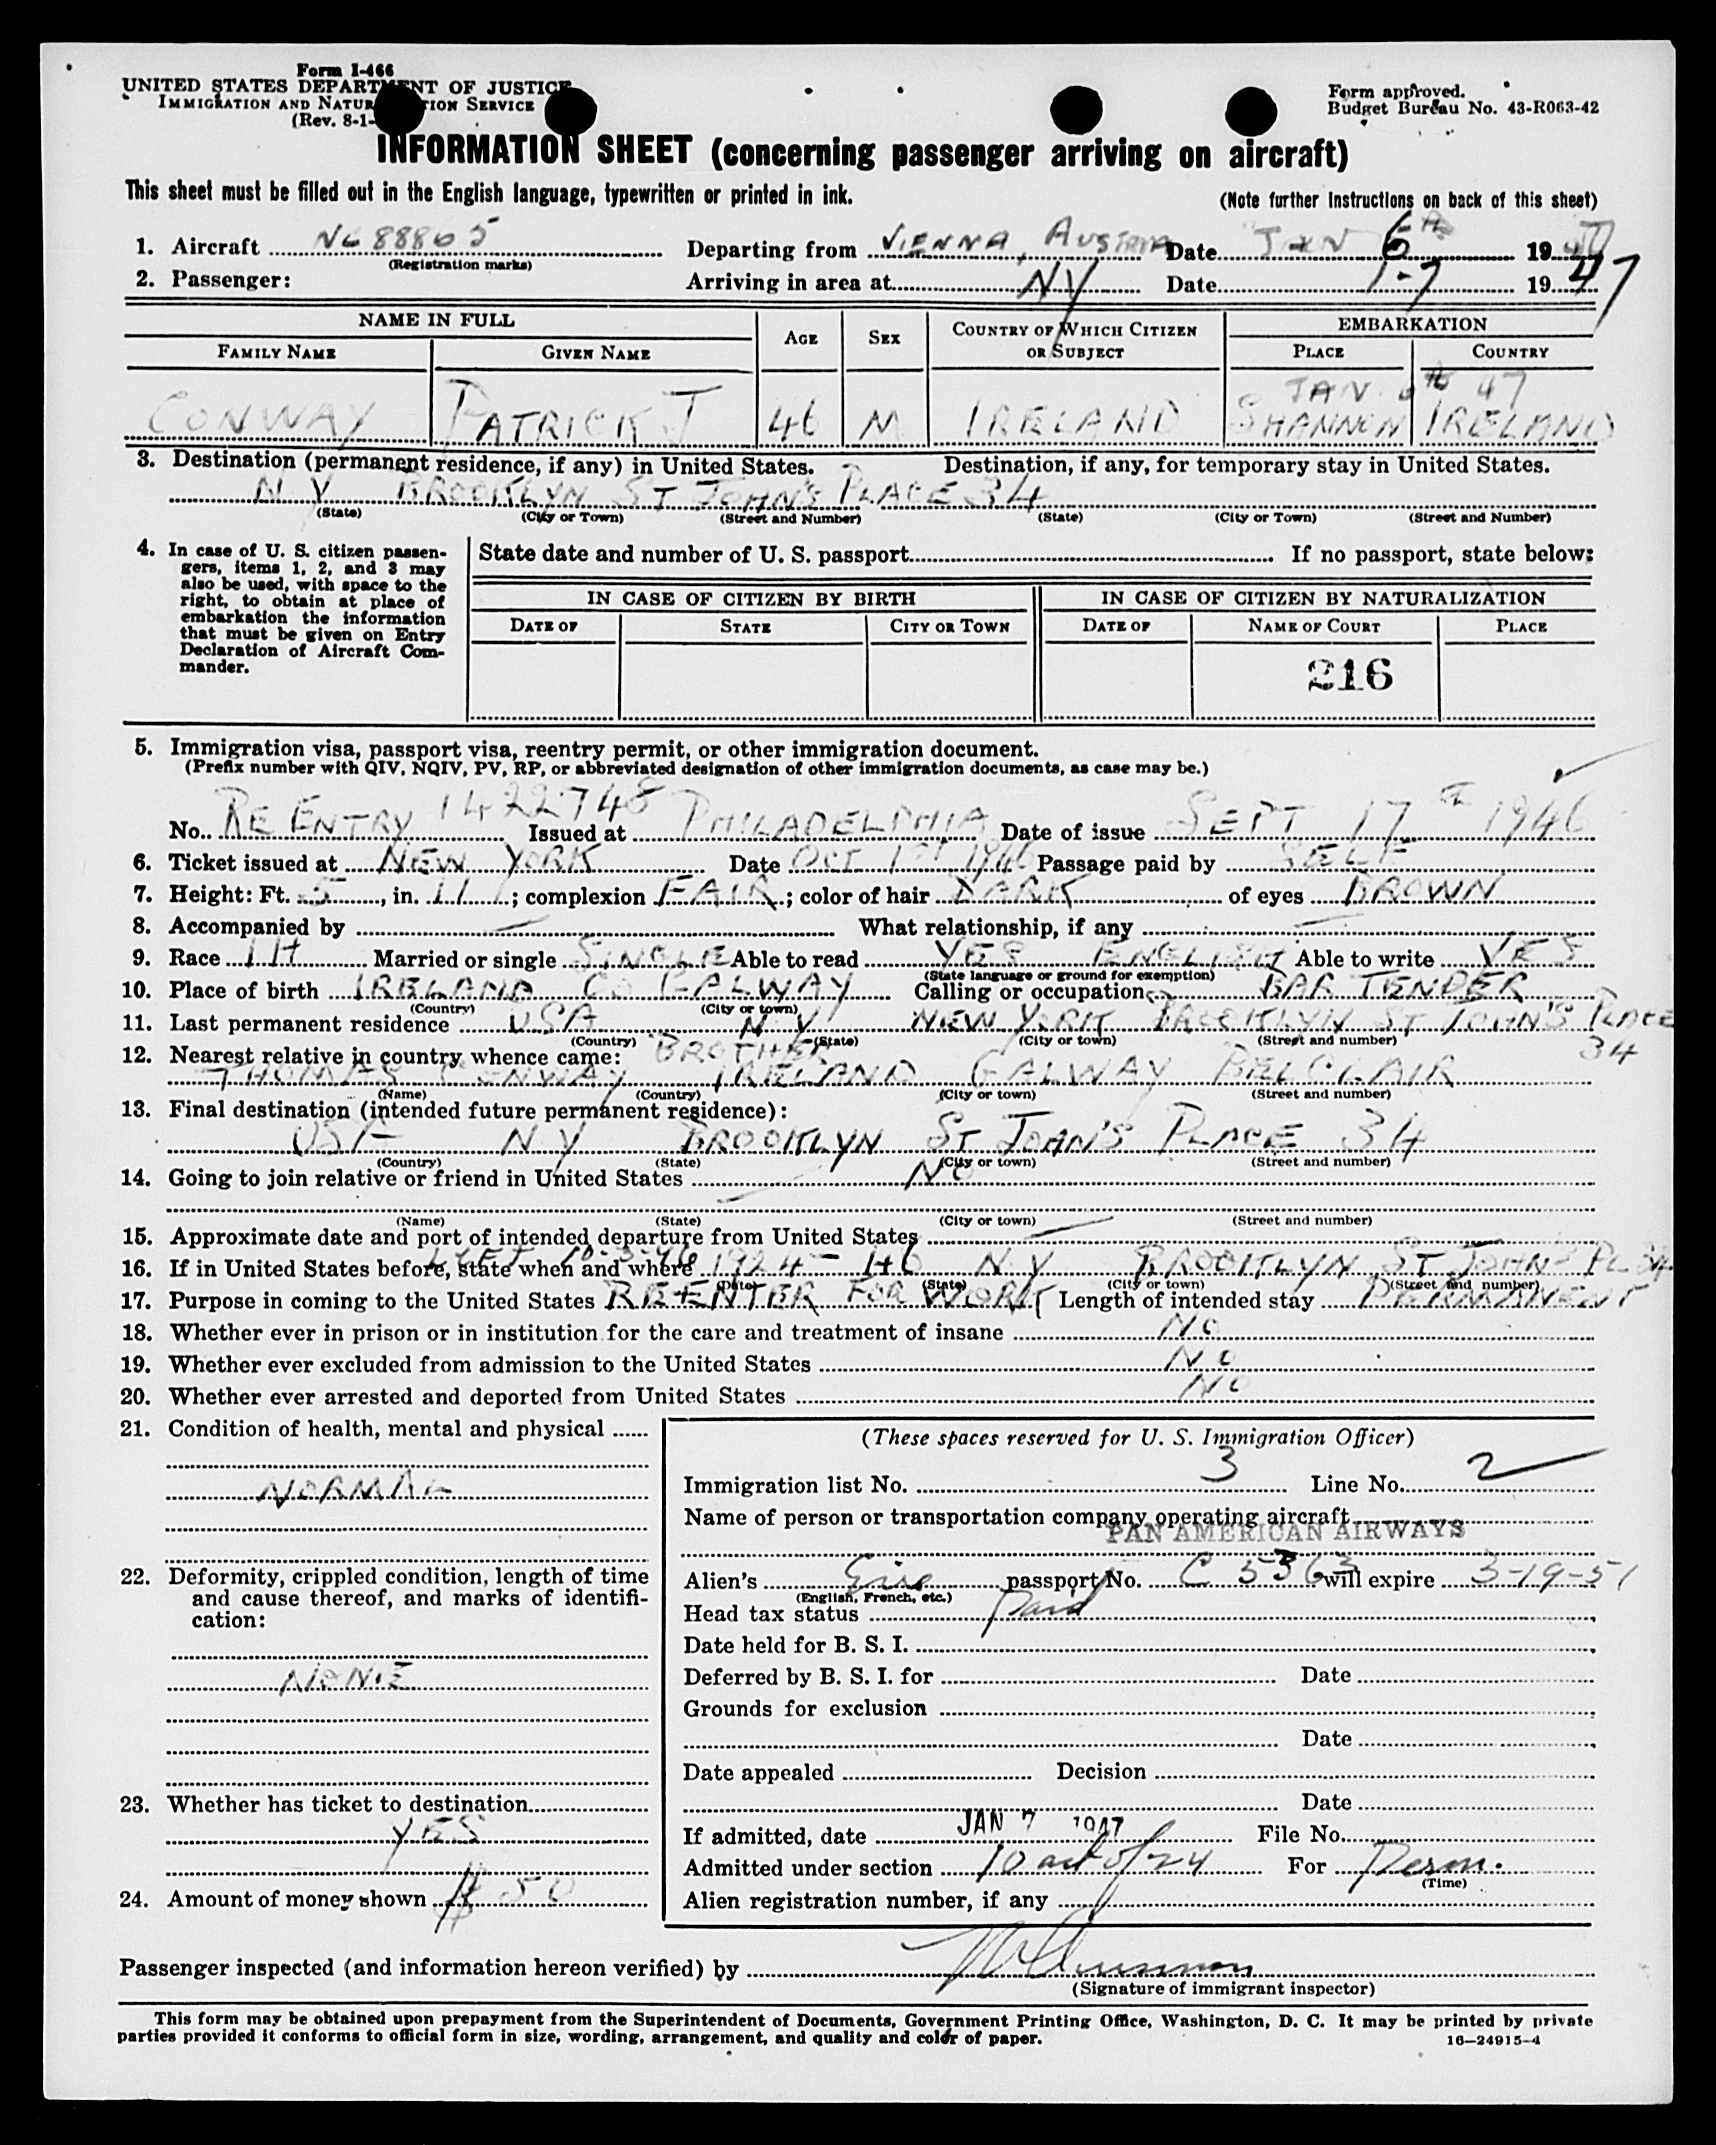 Form I-466
UNITED STATES DEPARTMENT OF JUSTICE
IMMIGRATION AND NATURALIZATION SERVICE
(Rev. 8-1-
Form approved.
Budget Bureau No. 43-R063-42
INFORMATION SHEET (concerning passenger arriving on aircraft)
This sheet must be filled out in the English language, typewritten or printed in ink.
(Note further instructions on back of this sheet)
1. Aircraft NC 88865 Departing from VIENNA, AUSTRIA Date JAN 6th 1947
(Registration marks)
2. Passenger: Arriving in area at NY Date 1-7 1947
NAME IN FULL AGE SEX COUNTRY OF WHICH CITIZEN OR SUBJECT EMBARKATION
FAMILY NAME GIVEN NAME PLACE COUNTRY
JAN 6th 47
CONWAY PATRICK J 46 M IRELAND SHANNON IRELAND
3. Destination (permanent residence, if any) in United States. Destination, if any, for temporary stay in United States.
N Y BROOKLYN ST JOHN'S PLACE 34
(State) (City or Town) (Street and Number) (State) (City or Town) (Street and Number)
4. In case of U. S. citizen passengers, items 1, 2, and 3 may also be used, with space to the right, to obtain at place of embarkation the information that must be given on Entry Declaration of Aircraft Commander.
State date and number of U. S. passport If no passport, state below:
IN CASE OF CITIZEN BY BIRTH IN CASE OF CITIZEN BY NATURALIZATION
DATE OF STATE CITY OR TOWN DATE OF NAME OF COURT PLACE
216
5. Immigration visa, passport visa, reentry permit, or other immigration document.
(Prefix number with QIV, NQIV, PV, RP, or abbreviated designation of other immigration documents, as case may be.)
No. RE ENTRY 1422748 Issued at PHILADELPHIA Date of issue SEPT 17th 1946
6. Ticket issued at NEW YORK Date OCT 1st 1946 Passage paid by SELF
7. Height: Ft. 5, in. 11; complexion FAIR; color of hair DARK of eyes BROWN
8. Accompanied by — What relationship, if any —
9. Race Married or single SINGLE Able to read YES ENGLISH Able to write YES
(State language or ground for exemption)
10. Place of birth IRELAND CO GALWAY Calling or occupation BAR TENDER
(Country) (City or town)
11. Last permanent residence USA N Y NEW YORK BROOKLYN ST JOHN'S PLACE 34
(Country) (State) (City or town) (Street and number)
12. Nearest relative in country whence came: BROTHER
THOMAS CONWAY IRELAND GALWAY BELCLAIR
(Name) (Country) (City or town) (Street and number)
13. Final destination (intended future permanent residence):
USA N Y BROOKLYN ST JOHN'S PLACE 34
(Country) (State) (City or town) (Street and number)
14. Going to join relative or friend in United States NO
(Name) (State) (City or town) (Street and number)
15. Approximate date and port of intended departure from United States —
LEFT 10-3-46
16. If in United States before, state when and where 1924 - 46 N Y BROOKLYN ST JOHN'S PL 34
(Date) (State) (City or town) (Street and number)
17. Purpose in coming to the United States RE-ENTER FOR WORK Length of intended stay PERMANENT
18. Whether ever in prison or in institution for the care and treatment of insane NO
19. Whether ever excluded from admission to the United States NO
20. Whether ever arrested and deported from United States NO
21. Condition of health, mental and physical
NORMAL
22. Deformity, crippled condition, length of time and cause thereof, and marks of identification:
NONE
23. Whether has ticket to destination
YES
24. Amount of money shown $ 50
(These spaces reserved for U. S. Immigration Officer)
Immigration list No. 3 Line No. 2
Name of person or transportation company operating aircraft
PAN AMERICAN AIRWAYS
Alien's Eire passport No. C 5363 will expire 3-19-51
(English, French, etc.)
Head tax status Paid
Date held for B. S. I.
Deferred by B. S. I. for Date
Grounds for exclusion
Date
Date appealed Decision
Date
If admitted, date JAN 7 1947 File No.
Admitted under section 10 act of 24 For Perm.
(Time)
Alien registration number, if any
Passenger inspected (and information hereon verified) by
(Signature of immigrant inspector)
This form may be obtained upon prepayment from the Superintendent of Documents, Government Printing Office, Washington, D. C. It may be printed by private
parties provided it conforms to official form in size, wording, arrangement, and quality and color of paper.
16—24915-4